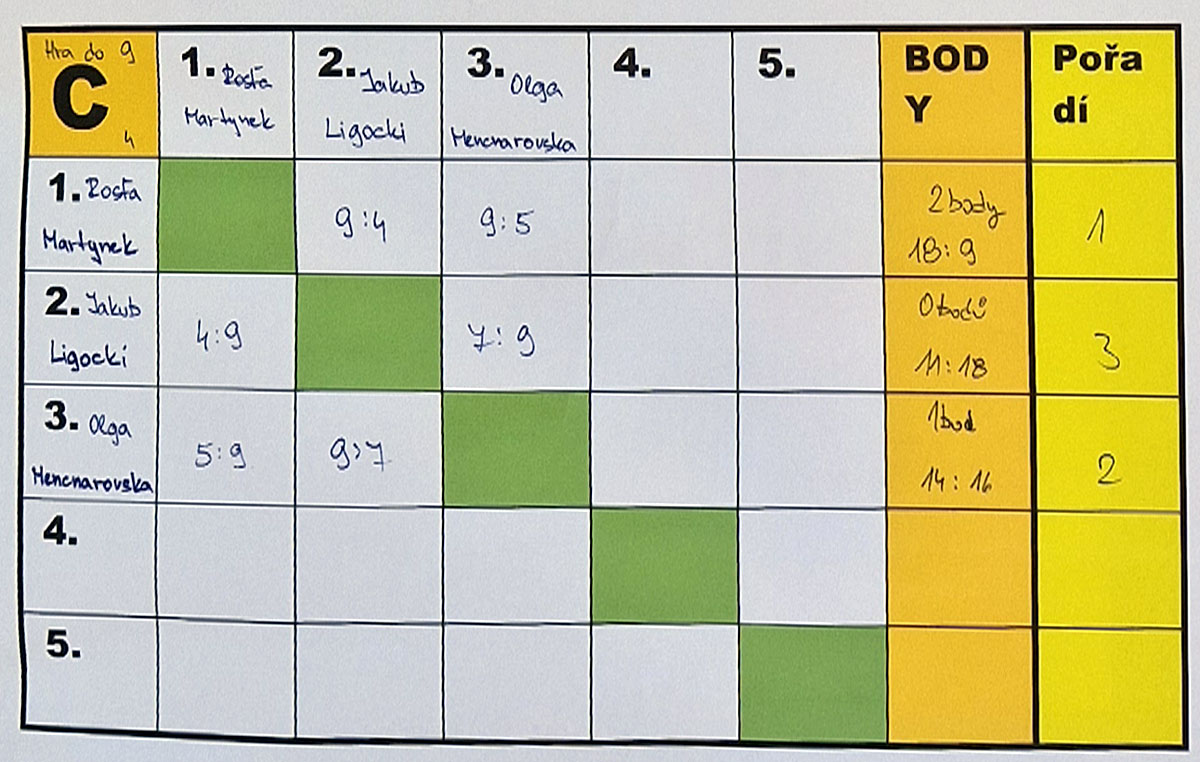 Hra do 9
C
4
1. Rosťa
Martynek
2. Jakub
Ligocki
3. Olga
Hencnarovska
4.
5.
BOD
Y
Pořa
dí
1. Rosťa
Martynek
9:4
9:5
2 body
18:9
1
2. Jakub
Ligocki
4:9
7:9
0 bodů
11:18
3
3. Olga
Hencnarovska
5:9
9:7
1 bod
14:16
2
4.
5.